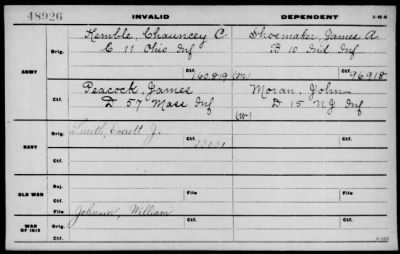 48926 INVALID DEPENDENT
Kemble, Chauncey C Shoemaker, James A
Orig. C 11 Ohio Inf B 10 Ind Inf
ARMY Ctf. 160.819 (M) Ctf. 96918
Peacock, James Moran, John
Ctf. D 57 Mass Inf D 15 NJ Inf
(W)
Orig. Smith, Everett J.
NAVY Ctf.
Ctf.
OLD WAR Rej.
Ctf. File Ctf. File
File Johnson, William
WAR OF 1812 Orig. Ctf. Ctf.